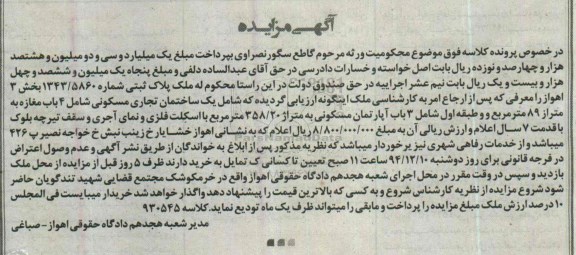 آگهی مزایده
در خصوص پرونده کلاسه فوق موضوع محکومیت ورثه مرحوم گاطع سگور نصراوی بپرداخت مبلغ یک میلیارد و سی و دو میلیون و هشتصد
هزار و چهارصد و نوزده ریال بابت اصل خواسته و خسارات دادرسی در حق آقای عبدالساده دلفی و مبلغ پنجاه یک میلیون و ششصد و چهل
هزار و بیست و یک ریال بابت نیم عشر اجراییه در حق صندوق دولت در این راستا محکوم له ملک پلاک ثبتی شماره ۱۳۴۳/۵۸۶۰ بخش ۳
اهواز را معرفی که پس از ارجاع امر به کارشناسی ملک اینگونه ارزیابی گردیده که شامل یک ساختمان تجاری مسکونی شامل ۴ باب مغازه به
متراژ ۸۹ مترمربع و و طبقه اول شامل ۳ باب آپارتمان مسکونی به متراژ ۳۵۸/۲۰ مترمربع با اسکلت فلزی و نمای آجری و سقف تیرچه بلوک
با قدمت ۷ سال اعلام و ارزش ریالی آن به مبلغ ۸/۸۰۰/۰۰۰/۰۰۰ ریال اعلام که به نشانی اهواز خشایار خ زینب نبش خ خواجه نصیر پ ۴۲۶
میباشد و از خدمات رفاهی شهری نیز برخوردار میباشد که نظریه مذکور پس از ابلاغ به خواندگان از طریق نشر آگهی و عدم وصول اعتراض
در فرجه قانونی برای روز دوشنبه ۹۴/۱۲/۱۰ ساعت ۱۱ صبح تعیین تا کسانی که تمایل به خرید دارند ظرف ۵ روز قبل از مزایده از محل ملک
بازدید و سپس در وقت مقرر در محل اجرای شعبه هجدهم دادگاه حقوقی اهواز واقع در خرمکوشک مجتمع قضایی شهید تندگویان حاضر
شود شروع مزایده از نظریه کارشناس شروع و به کسی که بالاترین قیمت را پیشنهاد دهد واگذار خواهد شد خریدار میبایست فی المجلس
۱۰ درصد ارزش ملک مبلغ مزایده را پرداخت و مابقی را میتواند ظرف یک ماه تودیع نماید. کلاسه ۹۳۰۵۴۵
مدیر شعبه هجدهم دادگاه حقوقی اهواز - صباغی